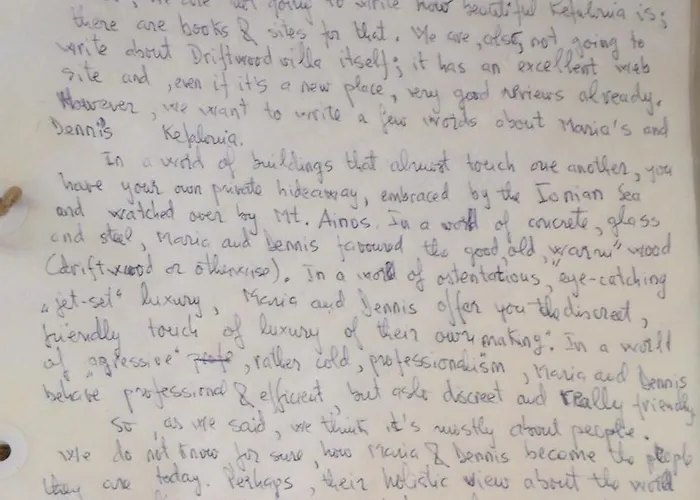 , we are not going to write how beautiful Kefalonia is;
there are books & sites for that. We are, also, not going to
write about Driftwood villa itself; it has an excellent web
site and, even if it's a new place, very good reviews already.
However, we want to write a few words about Maria's and
Dennis Kefalonia.
In a world of buildings that almost touch one another, you
have your own private hideaway, embraced by the Ionian Sea
and watched over by Mt. Ainos. In a world of concrete, glass
and steel, Maria and Dennis favoured the good, old, "warm" wood
(driftwood or otherwise). In a world of ostentatious, eye-catching
"jet-set" luxury, Maria and Dennis offer you the discreet,
friendly touch of luxury of their own making". In a world
of "agressive", rather cold, professionalism, Maria and Dennis
behave professional & efficient, but also discreet and really friendly
So, as we said, we think it's mostly about people.
We do not know for sure, how Maria & Dennis became the people
they are today. Perhaps, their holistic view about the world